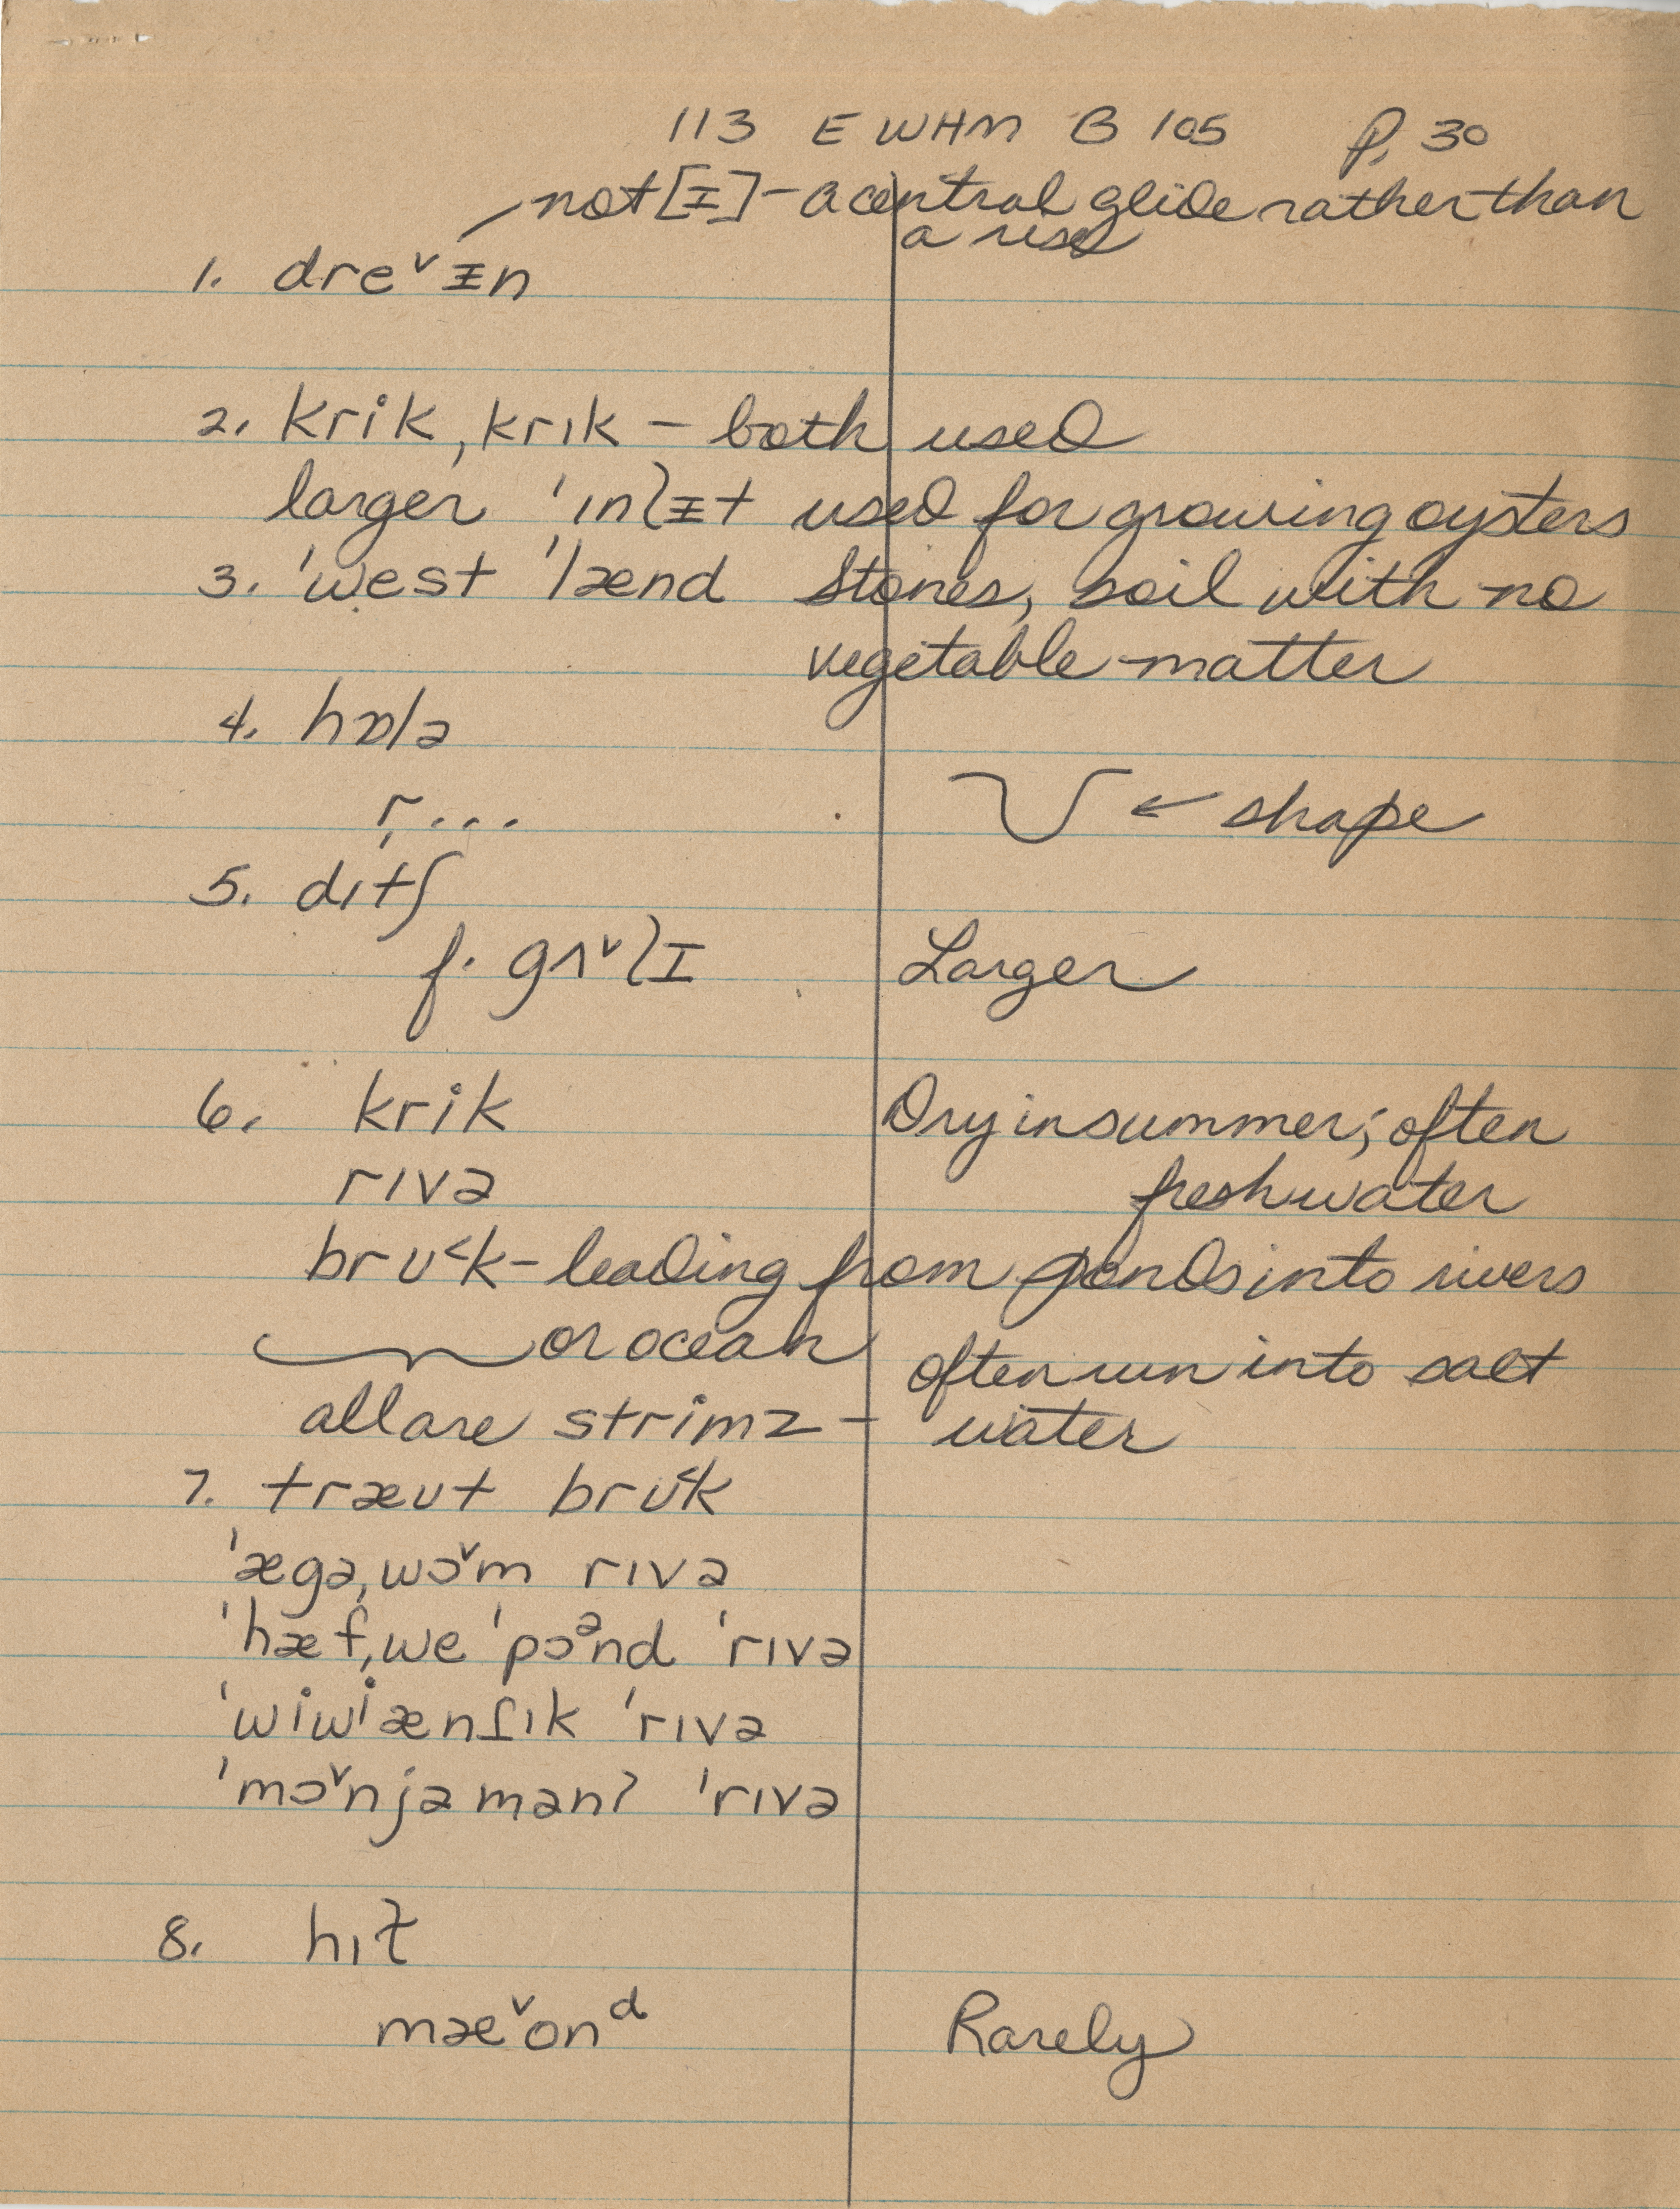 113 E WHM B 105 P. 30
not [ᵻ] - a central glide rather than
a rise
1. dre˅ᵻn
2. krik, krɪk - both used
larger 'ɪnlᵻt used for growing oysters
3. 'west 'lænd stones, soil with no
vegetable matter
4. hɒlə
r... ← shape
5. dɪtʃ
f. gʌ˅lɪ Larger
6. krik Dry in summer; often
rɪvə fresh water
brʊ˂k - leading from ponds into rivers
or ocean
often run into salt
all are strimz - water
7. træʊt brʊ˂k
'ægə,wɔ˅m rɪvə
'hæf,we 'pɔᵊnd 'rɪvə
'wiwiænʃɪk 'rɪvə
'mɔ˅njəmənʔ 'rɪvə
8. hɪɫ
mæ˅onᵈ Rarely